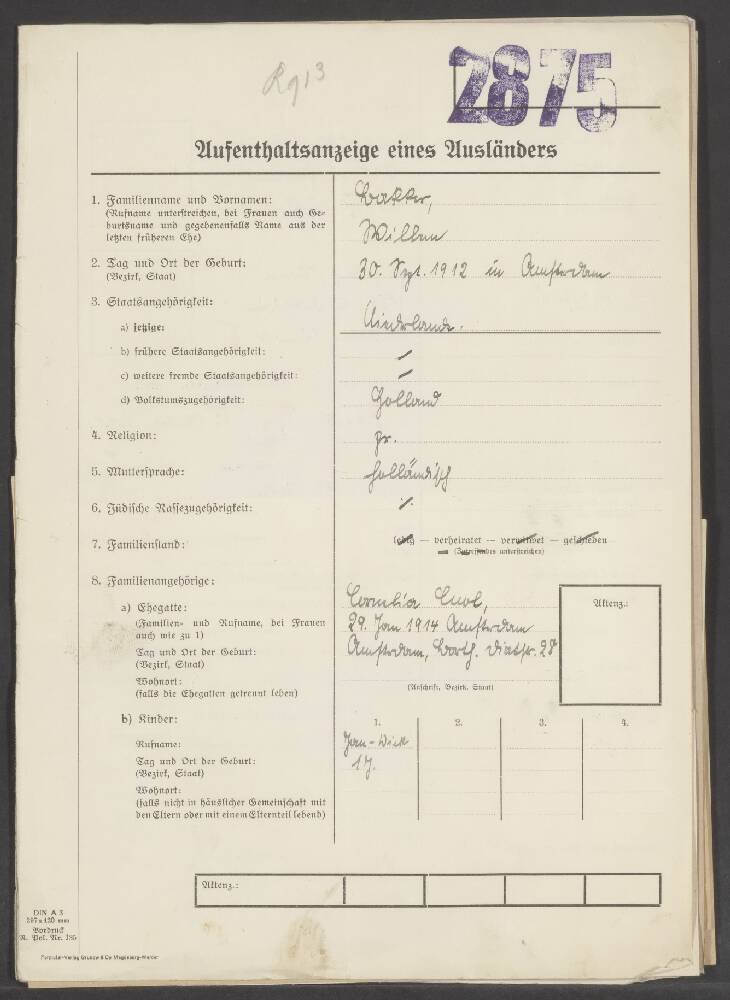 Rg13
2875
Aufenthaltsanzeige eines Ausländers
1. Familienname und Vornamen:
(Rufname unterstreichen, bei Frauen auch Ge-
burtsname und gegebenenfalls Name aus der
letzten früheren Ehe)
Bakker,
Willem
2. Tag und Ort der Geburt:
(Bezirk, Staat)
30. Sept. 1912 in Amsterdam
3. Staatsangehörigkeit:
a) jetzige:
Niederlande.
b) frühere Staatsangehörigkeit:
c) weitere fremde Staatsangehörigkeit:
d) Volkstumszugehörigkeit:
Holland
4. Religion:
5. Muttersprache:
holländisch
6. Jüdische Rassezugehörigkeit:
7. Familienstand:
ledig — verheiratet — verwitwet — geschieden
(Zutreffendes unterstreichen)
8. Familienangehörige:
a) Ehegatte:
(Familien- und Rufname, bei Frauen
auch wie zu 1)
Tag und Ort der Geburt:
(Bezirk, Staat)
Wohnort:
(falls die Ehegatten getrennt leben)
Cornelia
29. Jan 1914 Amsterdam
Amsterdam, 28
(Anschrift, Bezirk, Staat)
Aktenz.:
b) Kinder:
1. 2. 3. 4.
Rufname:
Jan-
Tag und Ort der Geburt:
(Bezirk, Staat)
1 J.
Wohnort:
(falls nicht in häuslicher Gemeinschaft mit
den Eltern oder mit einem Elternteil lebend)
Aktenz.:
DIN A 3
297 x 420 mm
Vordruck
R. Pol. Nr. 235